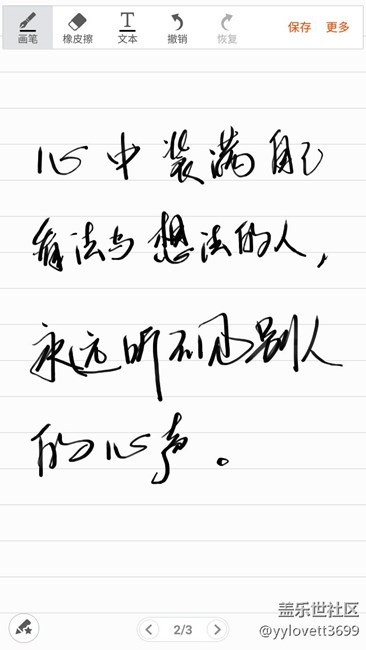 画笔 橡皮擦 文本 撤销 恢复 保存 更多
心中装满自己
看法与想法的人，
永远听不见别人
的心声。
2/3
盖乐世社区
@yylovett3699